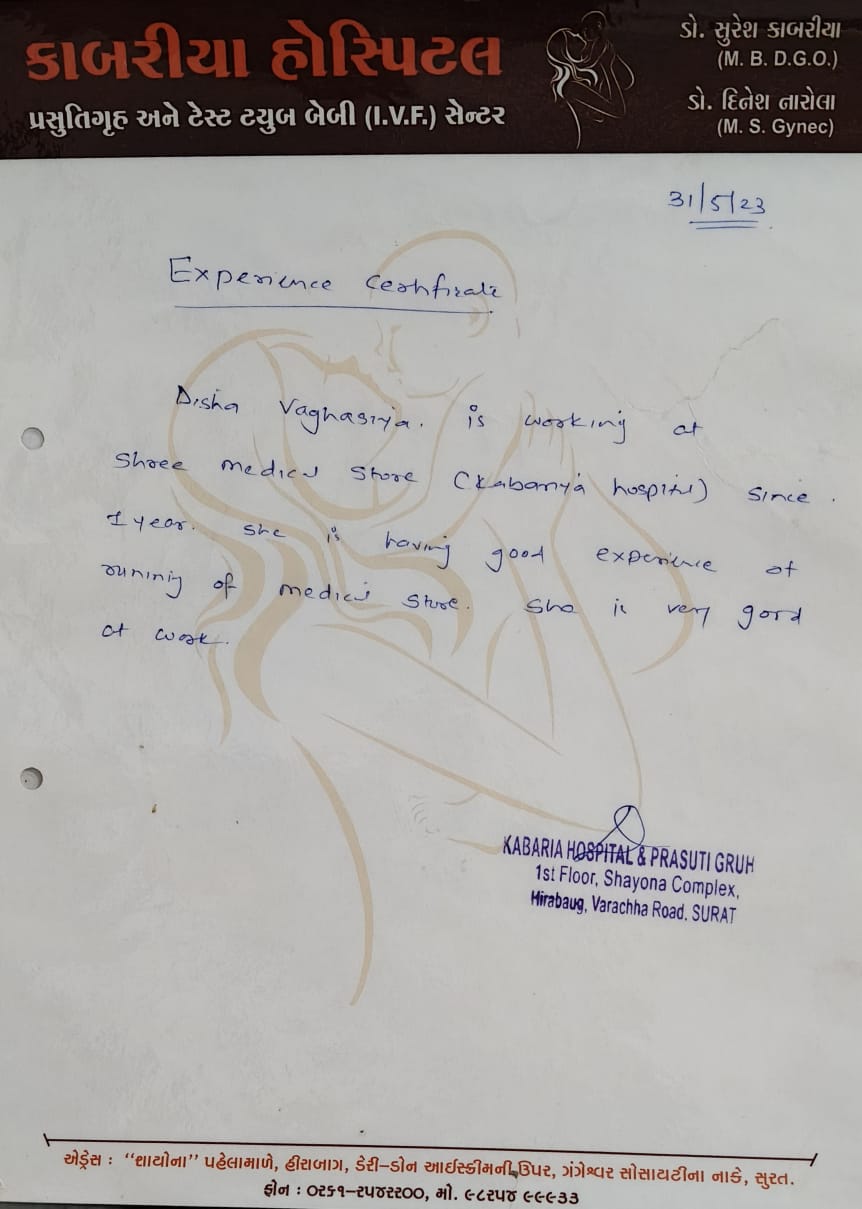 કાબરીયા હોસ્પિટલ
પ્રસુતિગૃહ અને ટેસ્ટ ટયુબ બેબી (I.V.F.) સેન્ટર
ડો. સુરેશ કાબરીયા
(M. B. D.G.O.)
ડો. દિનેશ નારોલા
(M. S. Gynec)
31/5/23
Experience Certificate
Disha Vaghasiya. is working at
Shree medical store (Kabariya hospital) since.
1 year. she is having good experience of
running of medical store. She is very good
at work.
KABARIA HOSPITAL & PRASUTI GRUH
1st Floor, Shayona Complex,
Hirabaug, Varachha Road, SURAT
એડ્રેસ : "શાયોના" પહેલામાળે, હીરાબાગ, ડેરી-ડોન આઈસ્ક્રીમની ઉપર, ગંગેશ્વર સોસાયટીના નાકે, સુરત.
ફોન : ૦૨૬૧-૨૫૪૨૨૦૦, મો. ૯૮૨૫૪ ૯૯૯૩૩